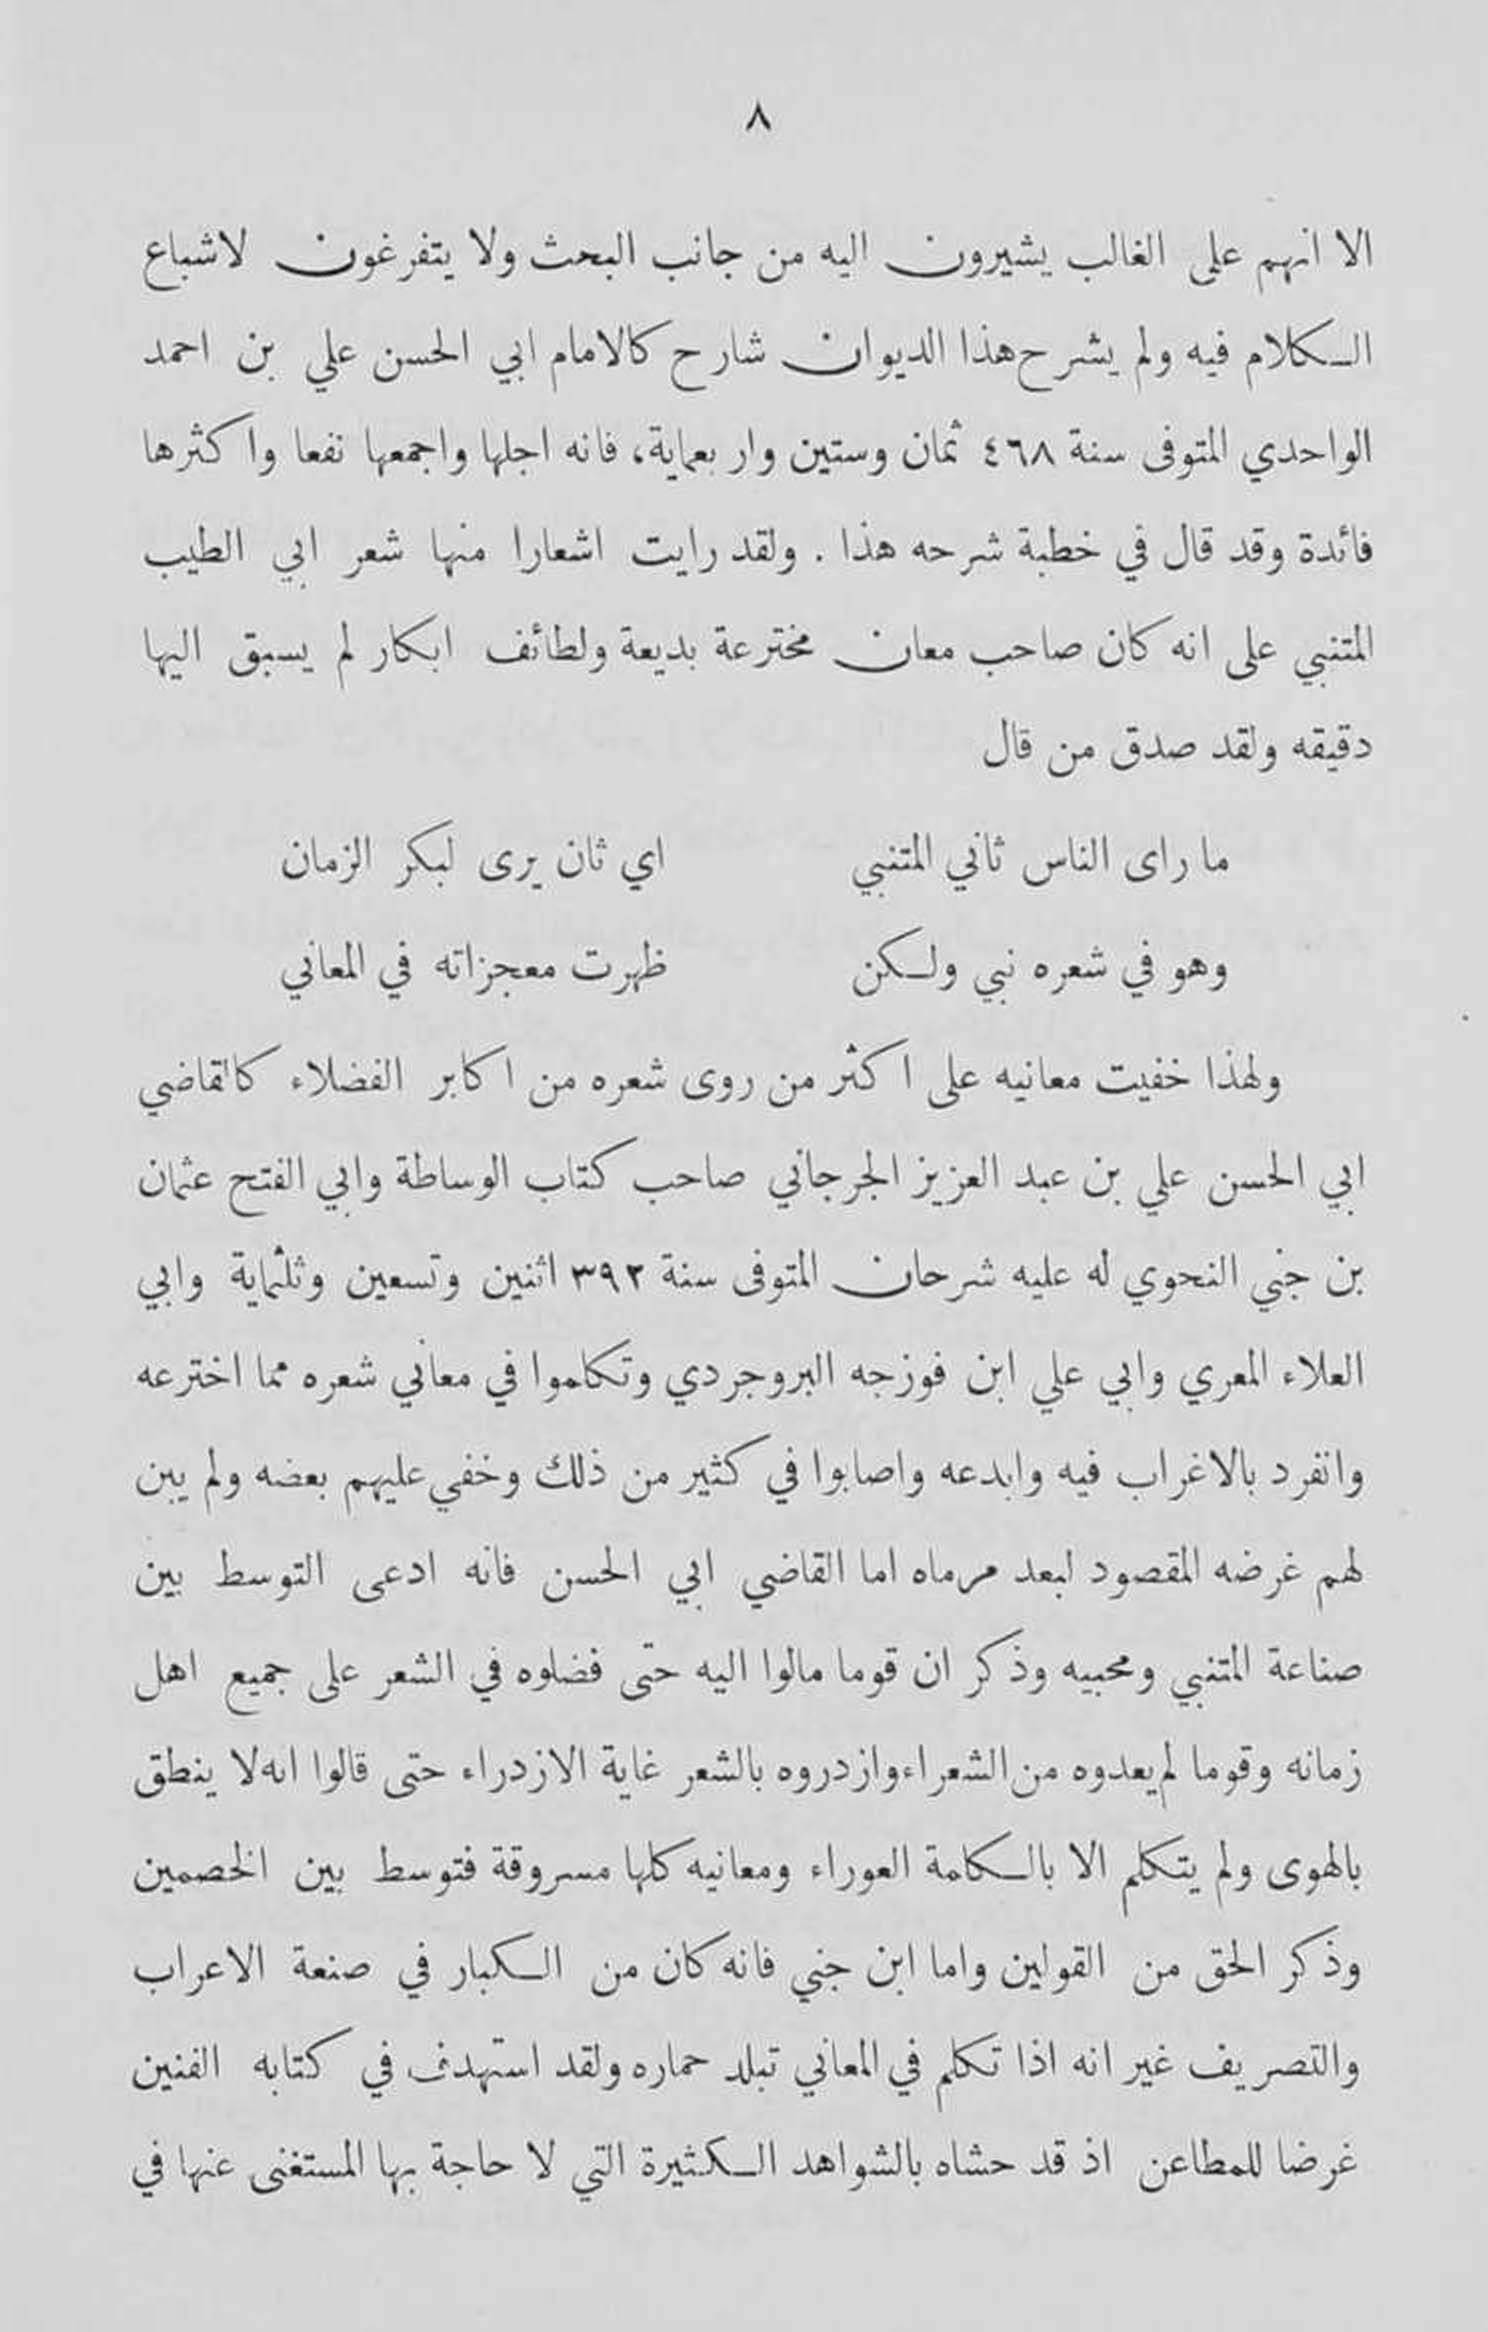 ٨
الا انهم على الغالب يشيرون اليه من جانب البحث ولا يتفرغون لاشباع
الكلام فيه ولم يشرح هذا الديوان شارح كالامام ابي الحسن علي بن احمد
الواحدي المتوفى سنة ٤٦٨ ثمان وستين واربعماية، فانه اجلها واجمعها نفعا واكثرها
فائدة وقد قال في خطبة شرحه هذا . ولقد رايت اشعارا منها شعر ابي الطيب
المتنبي على انه كان صاحب معان مخترعة بديعة ولطائف ابكار لم يسبق اليها
دقيقه ولقد صدق من قال
ما راى الناس ثاني المتنبي اي ثان يرى لبكر الزمان
وهو في شعره نبي ولكن ظهرت معجزاته في المعاني
ولهذا خفيت معانيه على اكثر من روى شعره من اكابر الفضلاء كالقاضي
ابي الحسن علي بن عبد العزيز الجرجاني صاحب كتاب الوساطة وابي الفتح عثمان
بن جني النحوي له عليه شرحان المتوفى سنة ٣٩٢ اثنين وتسعين وثلثماية وابي
العلاء المعري وابي علي ابن فوزجه البروجردي وتكلموا في معاني شعره مما اخترعه
وانفرد بالاغراب فيه وابدعه واصابوا في كثير من ذلك وخفي عليهم بعضه ولم يبن
لهم غرضه المقصود لبعد مرماه اما القاضي ابي الحسن فانه ادعى التوسط بين
صناعة المتنبي ومحبيه وذكر ان قوما مالوا اليه حتى فضلوه في الشعر على جميع اهل
زمانه وقوما لم يعدوه من الشعراء وازدروه بالشعر غاية الازدراء حتى قالوا انه لا ينطق
بالهوى ولم يتكلم الا بالكلمة العوراء ومعانيه كلها مسروقة فتوسط بين الخصمين
وذكر الحق من القولين واما ابن جني فانه كان من الكبار في صنعة الاعراب
والتصريف غير انه اذا تكلم في المعاني تبلد حماره ولقد استهدف في كتابه الفنين
غرضا للمطاعن اذ قد حشاه بالشواهد الكثيرة التي لا حاجة بها المستغنى عنها في